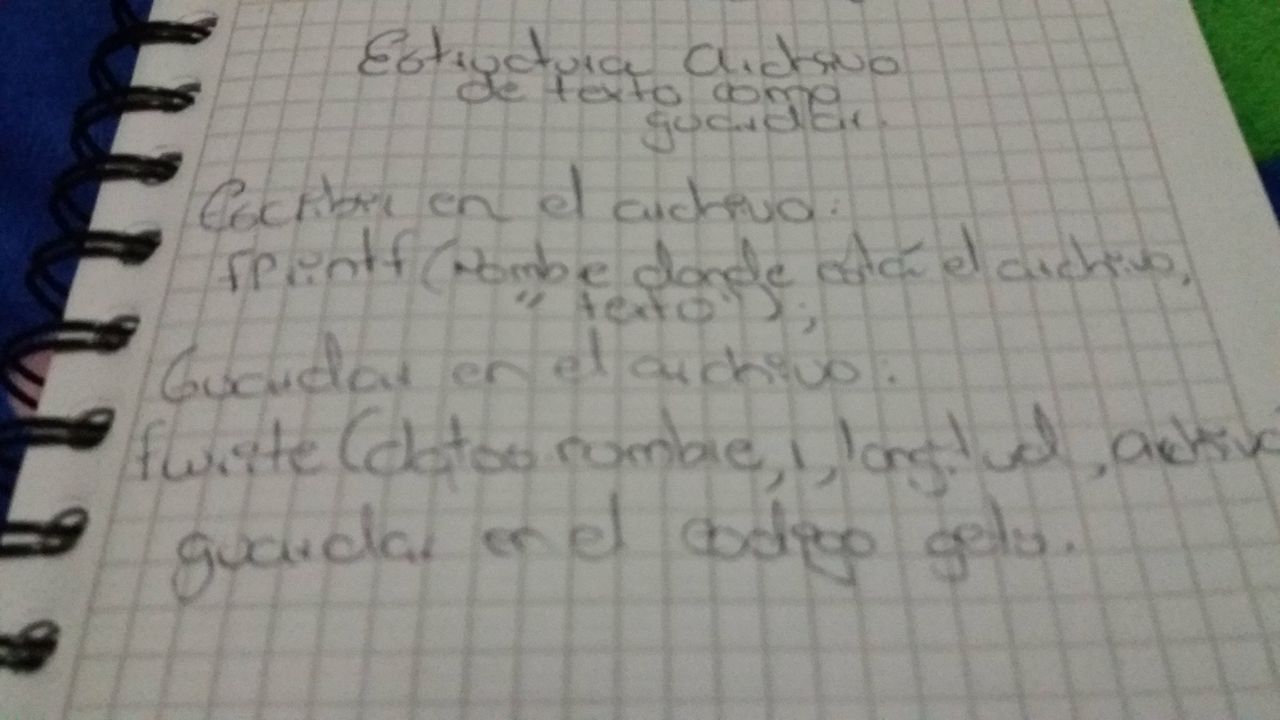 Estructura archivo
de texto como
guardar.
Escribir en el archivo:
fprintf (Nombre donde está el archivo,
" texto");
Guardar en el archivo:
fwrite (datos nombre, 1, longitud, archivo
guardar en el codigo